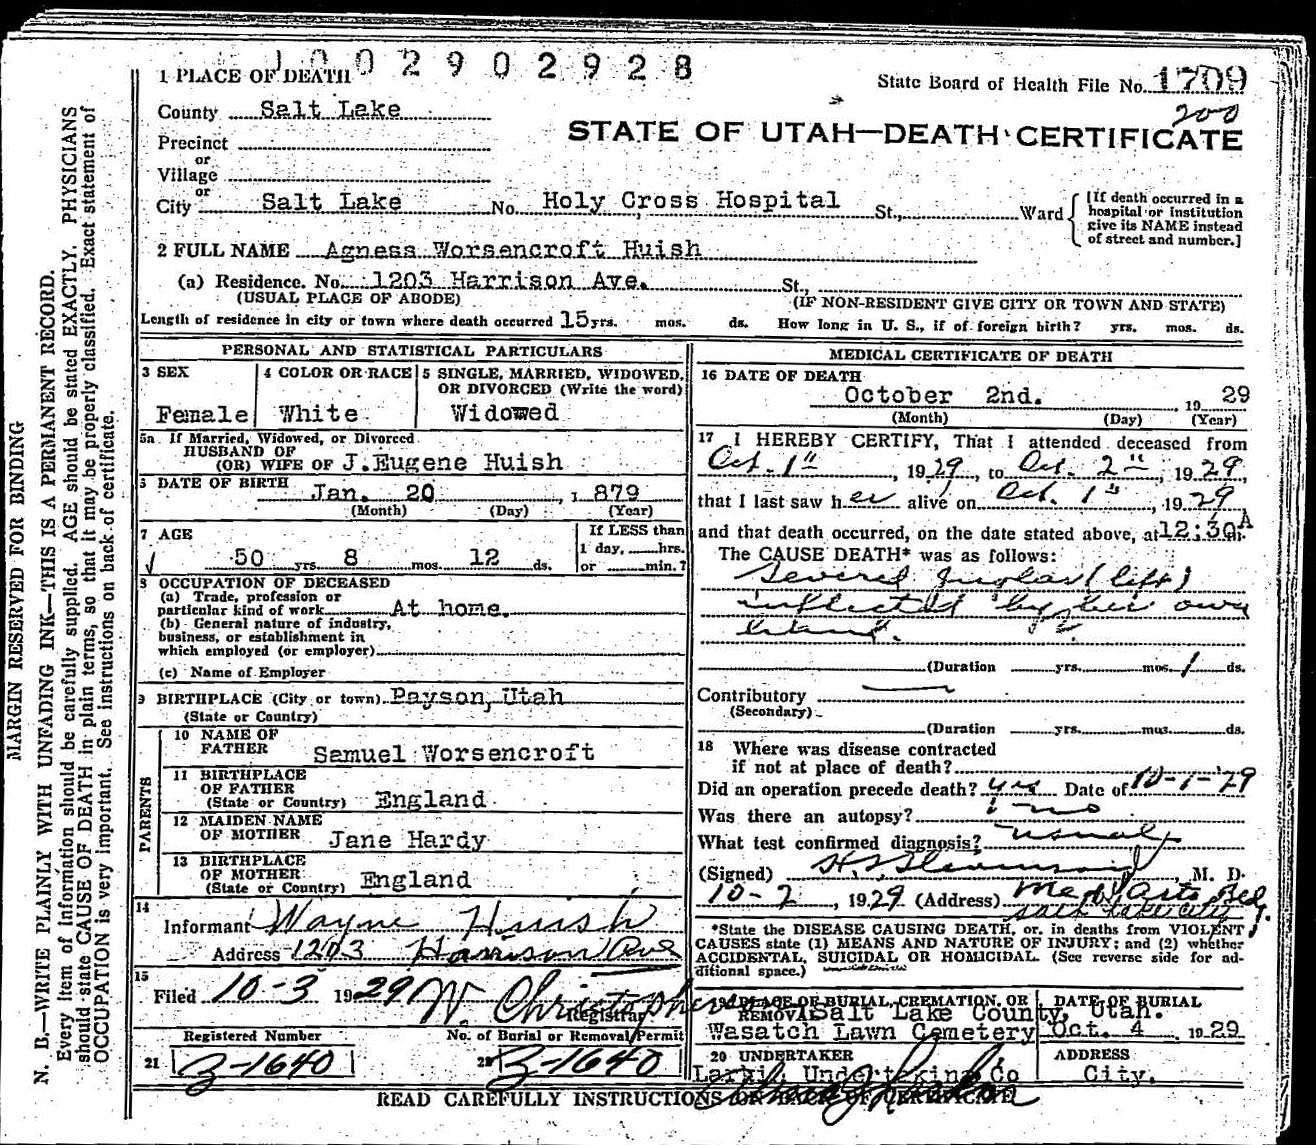 1 0 0 2 9 0 2 9 2 8
1 PLACE OF DEATH
State Board of Health File No. 1709
200
County Salt Lake
STATE OF UTAH—DEATH CERTIFICATE
Precinct
or
Village
or
City Salt Lake No. Holy Cross Hospital St., Ward
[If death occurred in a hospital or institution give its NAME instead of street and number.]
2 FULL NAME Agness Worsencroft Huish
(a) Residence. No. 1203 Harrison Ave. St.,
(USUAL PLACE OF ABODE) (IF NON-RESIDENT GIVE CITY OR TOWN AND STATE)
Length of residence in city or town where death occurred 15 yrs. mos. ds. How long in U. S., if of foreign birth? yrs. mos. ds.
PERSONAL AND STATISTICAL PARTICULARS
3 SEX
Female
4 COLOR OR RACE
White
5 SINGLE, MARRIED, WIDOWED,
OR DIVORCED (Write the word)
Widowed
5a If Married, Widowed, or Divorced
HUSBAND OF
(OR) WIFE OF J. Eugene Huish
6 DATE OF BIRTH Jan. 20, 1879
(Month) (Day) (Year)
7 AGE
50 yrs. 8 mos. 12 ds.
If LESS than
1 day, hrs.
or min.?
8 OCCUPATION OF DECEASED
(a) Trade, profession or
particular kind of work At home.
(b) General nature of industry,
business, or establishment in
which employed (or employer)
(c) Name of Employer
9 BIRTHPLACE (City or town) Payson, Utah
(State or Country)
PARENTS
10 NAME OF
FATHER Samuel Worsencroft
11 BIRTHPLACE
OF FATHER
(State or Country) England
12 MAIDEN NAME
OF MOTHER Jane Hardy
13 BIRTHPLACE
OF MOTHER
(State or Country) England
14
Informant Wayne Huish
Address 1203 Harrison Ave
15
Filed 10-3 1929 W. Christophers
Registrar
Registered Number No. of Burial or Removal Permit
21 3-1640 22 3-1640
MEDICAL CERTIFICATE OF DEATH
16 DATE OF DEATH
October 2nd. 1929
(Month) (Day) (Year)
17 I HEREBY CERTIFY, That I attended deceased from
Oct. 1st, 1929, to Oct. 2nd, 1929,
that I last saw her alive on Oct. 1st, 1929
and that death occurred, on the date stated above, at 12:30 A m.
The CAUSE DEATH* was as follows:
Severed Juglar (left)
inflected by her own
hand.
(Duration yrs. mos. 1 ds.
Contributory
(Secondary)
(Duration yrs. mos. ds.
18 Where was disease contracted
if not at place of death?
Did an operation precede death? yes Date of 10-1-'29
Was there an autopsy? no
What test confirmed diagnosis? usual
(Signed) M. D.
10-2, 1929 (Address) Med. Arts Bldg.
Salt Lake City
*State the DISEASE CAUSING DEATH, or, in deaths from VIOLENT
CAUSES state (1) MEANS AND NATURE OF INJURY; and (2) whether
ACCIDENTAL, SUICIDAL OR HOMICIDAL. (See reverse side for ad-
ditional space.)
19 PLACE OF BURIAL, CREMATION, OR
REMOVAL Salt Lake County, Utah.
Wasatch Lawn Cemetery
DATE OF BURIAL
Oct. 4 1929
20 UNDERTAKER
Larkin Undertaking Co
ADDRESS
City.
READ CAREFULLY INSTRUCTIONS ON BACK OF CERTIFICATE
MARGIN RESERVED FOR BINDING
N. B.—WRITE PLAINLY WITH UNFADING INK—THIS IS A PERMANENT RECORD.
Every item of information should be carefully supplied. AGE should be stated EXACTLY. PHYSICIANS
should state CAUSE OF DEATH in plain terms, so that it may be properly classified. Exact statement of
OCCUPATION is very important. See instructions on back of certificate.